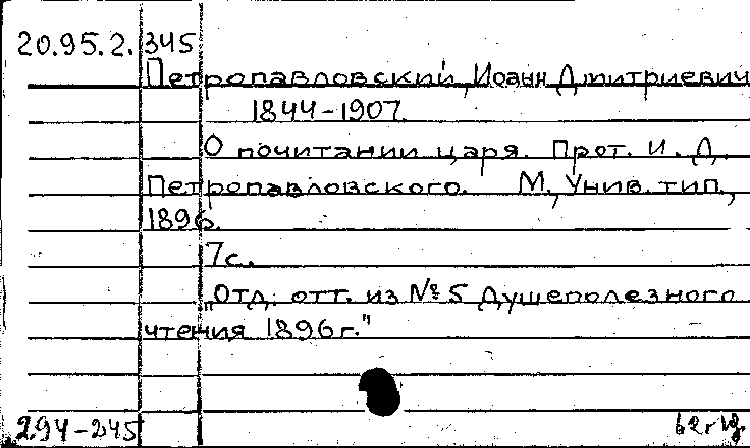 20.95.2.345
Петропавловский, Иоанн Дмитриевич
1844-1907.
О почитании царя. Прот. И. Д.
Петропавловского. М., Унив. тип.,
1896.
7с.
"Отд: отт. из № 5 Душеполезного
чтения 1896г."
294-245